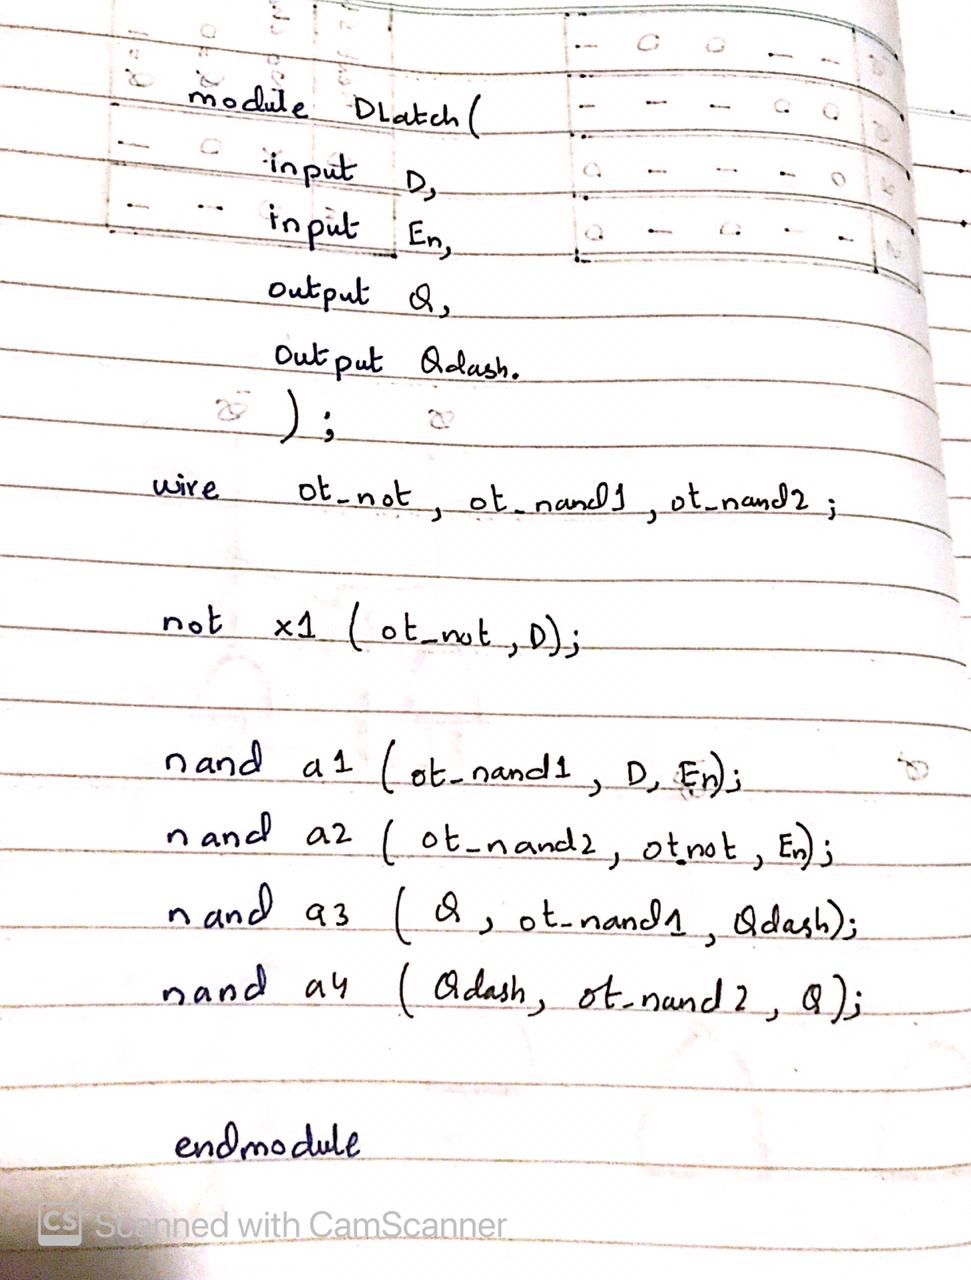 module DLatch(
input D,
input En,
output Q,
output Qdash.
);
wire ot_not, ot_nand1, ot_nand2;
not x1 (ot_not, D);
nand a1 (ot_nand1, D, En);
nand a2 (ot_nand2, ot_not, En);
nand a3 (Q, ot_nand1, Qdash);
nand a4 (Qdash, ot_nand2, Q);
endmodule
CS Scanned with CamScanner